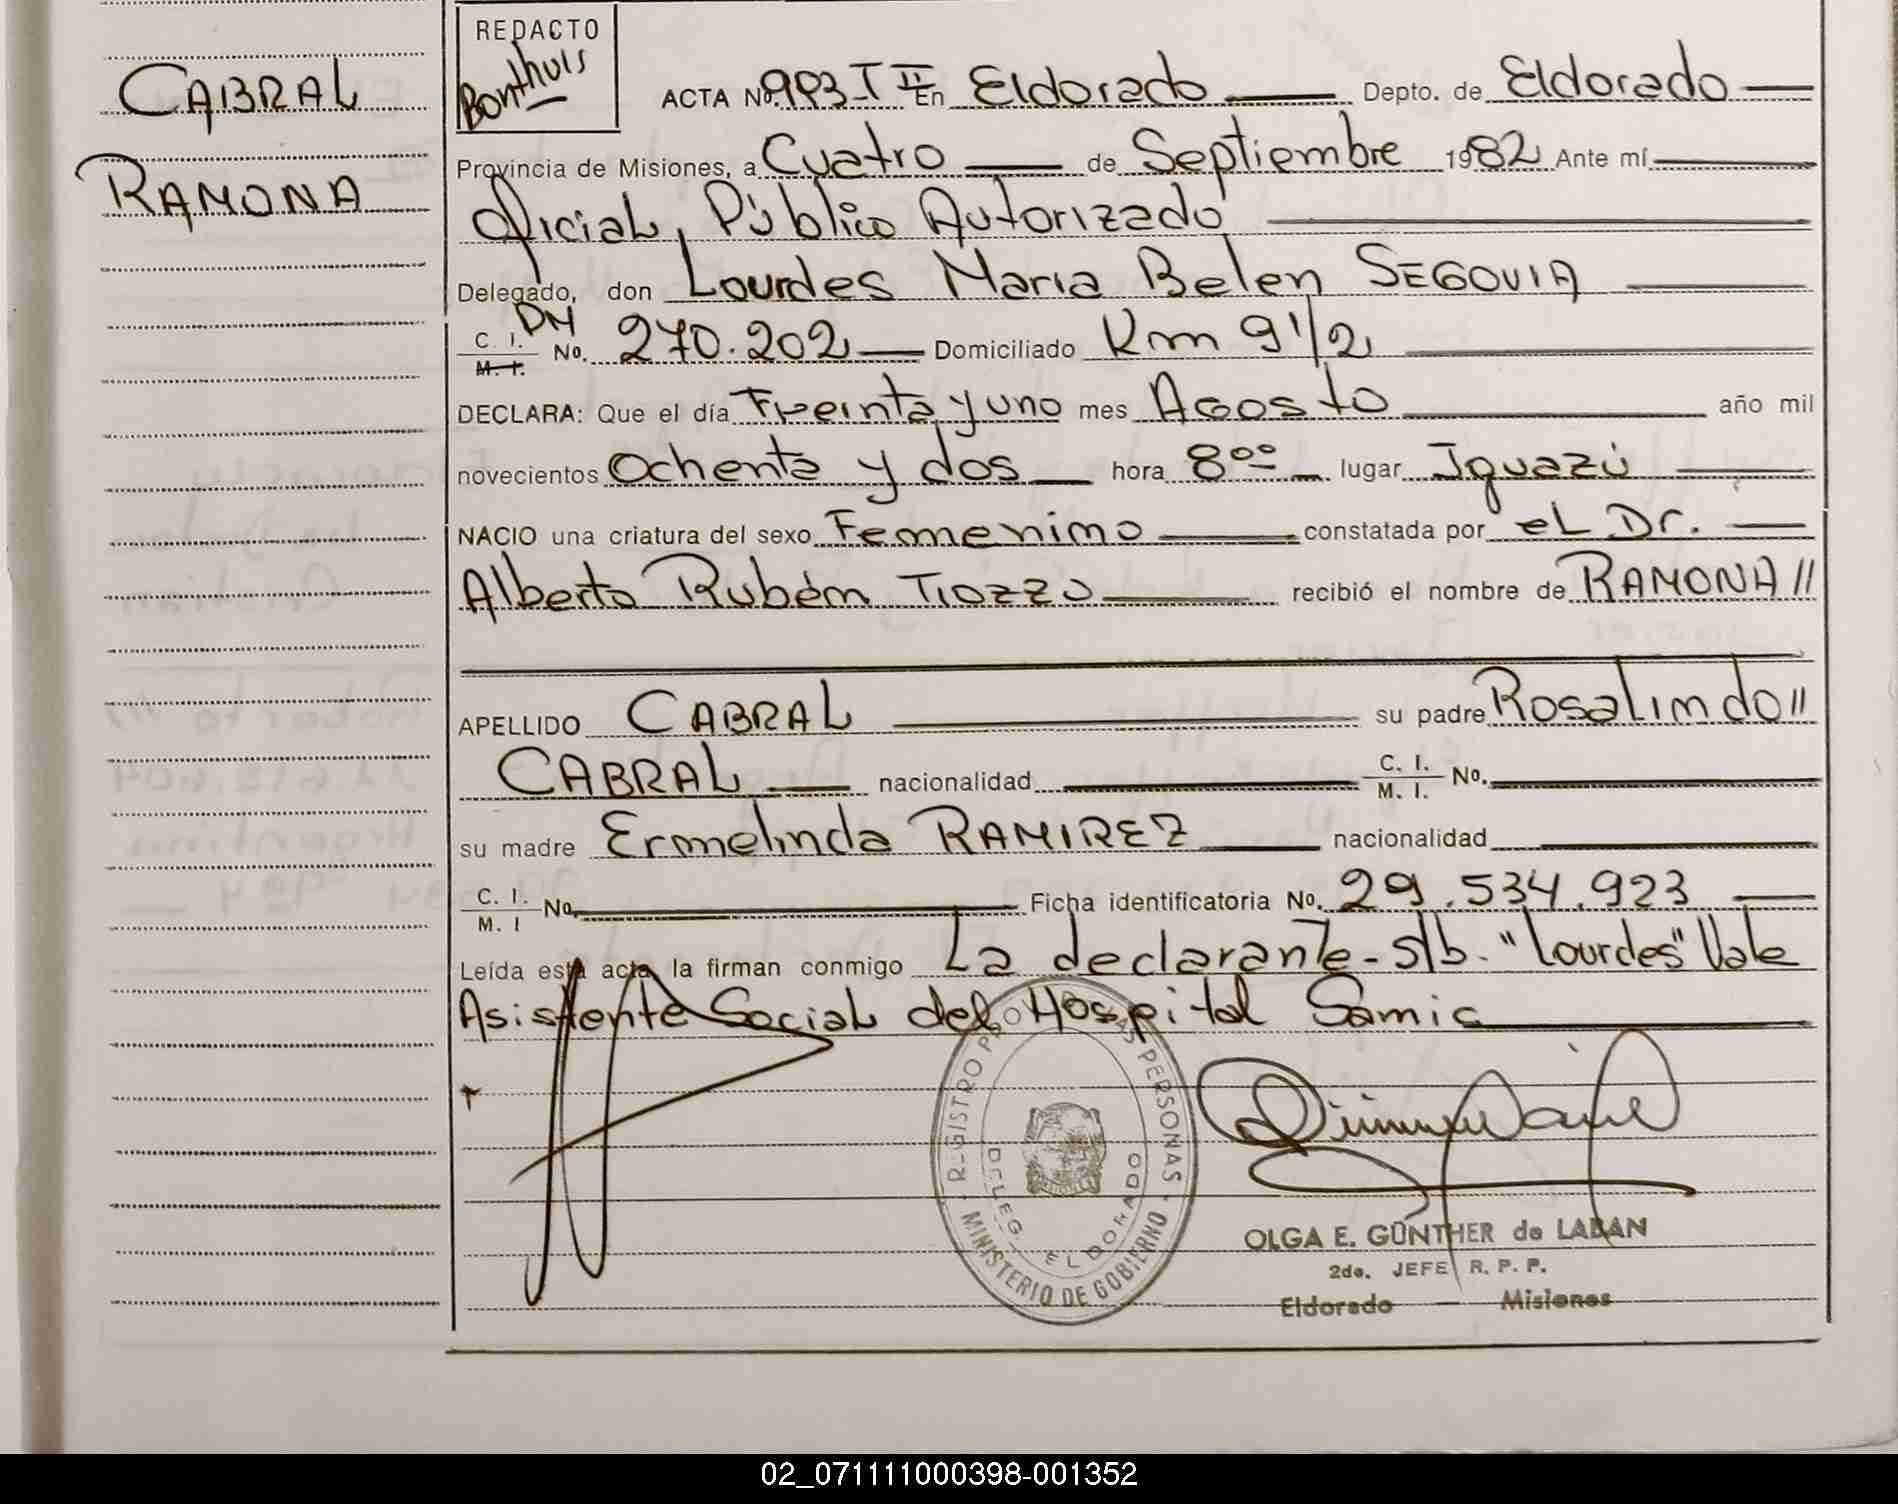 CABRAL
RAMONA
REDACTO
Bonthuis
ACTA No. 993-T II En Eldorado Depto. de Eldorado
Provincia de Misiones, a Cuatro de Septiembre 1982 Ante mí
Oficial Público Autorizado
Delegado, don Lourdes Maria Belen SEGOVIA
C. I. DNI
M. I. No. 270.202 Domiciliado Km 9 1/2
DECLARA: Que el día Treinta y uno mes Agosto año mil
novecientos Ochenta y dos hora 8°° lugar Iguazú
NACIO una criatura del sexo Femenino constatada por el Dr.
Alberto Rubén Tiozzo recibió el nombre de RAMONA //
APELLIDO CABRAL su padre Rosalindo //
CABRAL nacionalidad C. I. M. I. No.
su madre Ermelinda RAMIREZ nacionalidad
C. I. M. I No. Ficha identificatoria No. 29.534.923
Leída esta acta la firman conmigo La declarante - s/b. "Lourdes" Vale
Asistente Social del Hospital Samic
REGISTRO PROV. DE LAS PERSONAS
DELEG. ELDORADO
MINISTERIO DE GOBIERNO
OLGA E. GÜNTHER de LABAN
2da. JEFE R. P. P.
Eldorado — Misiones
02_071111000398-001352